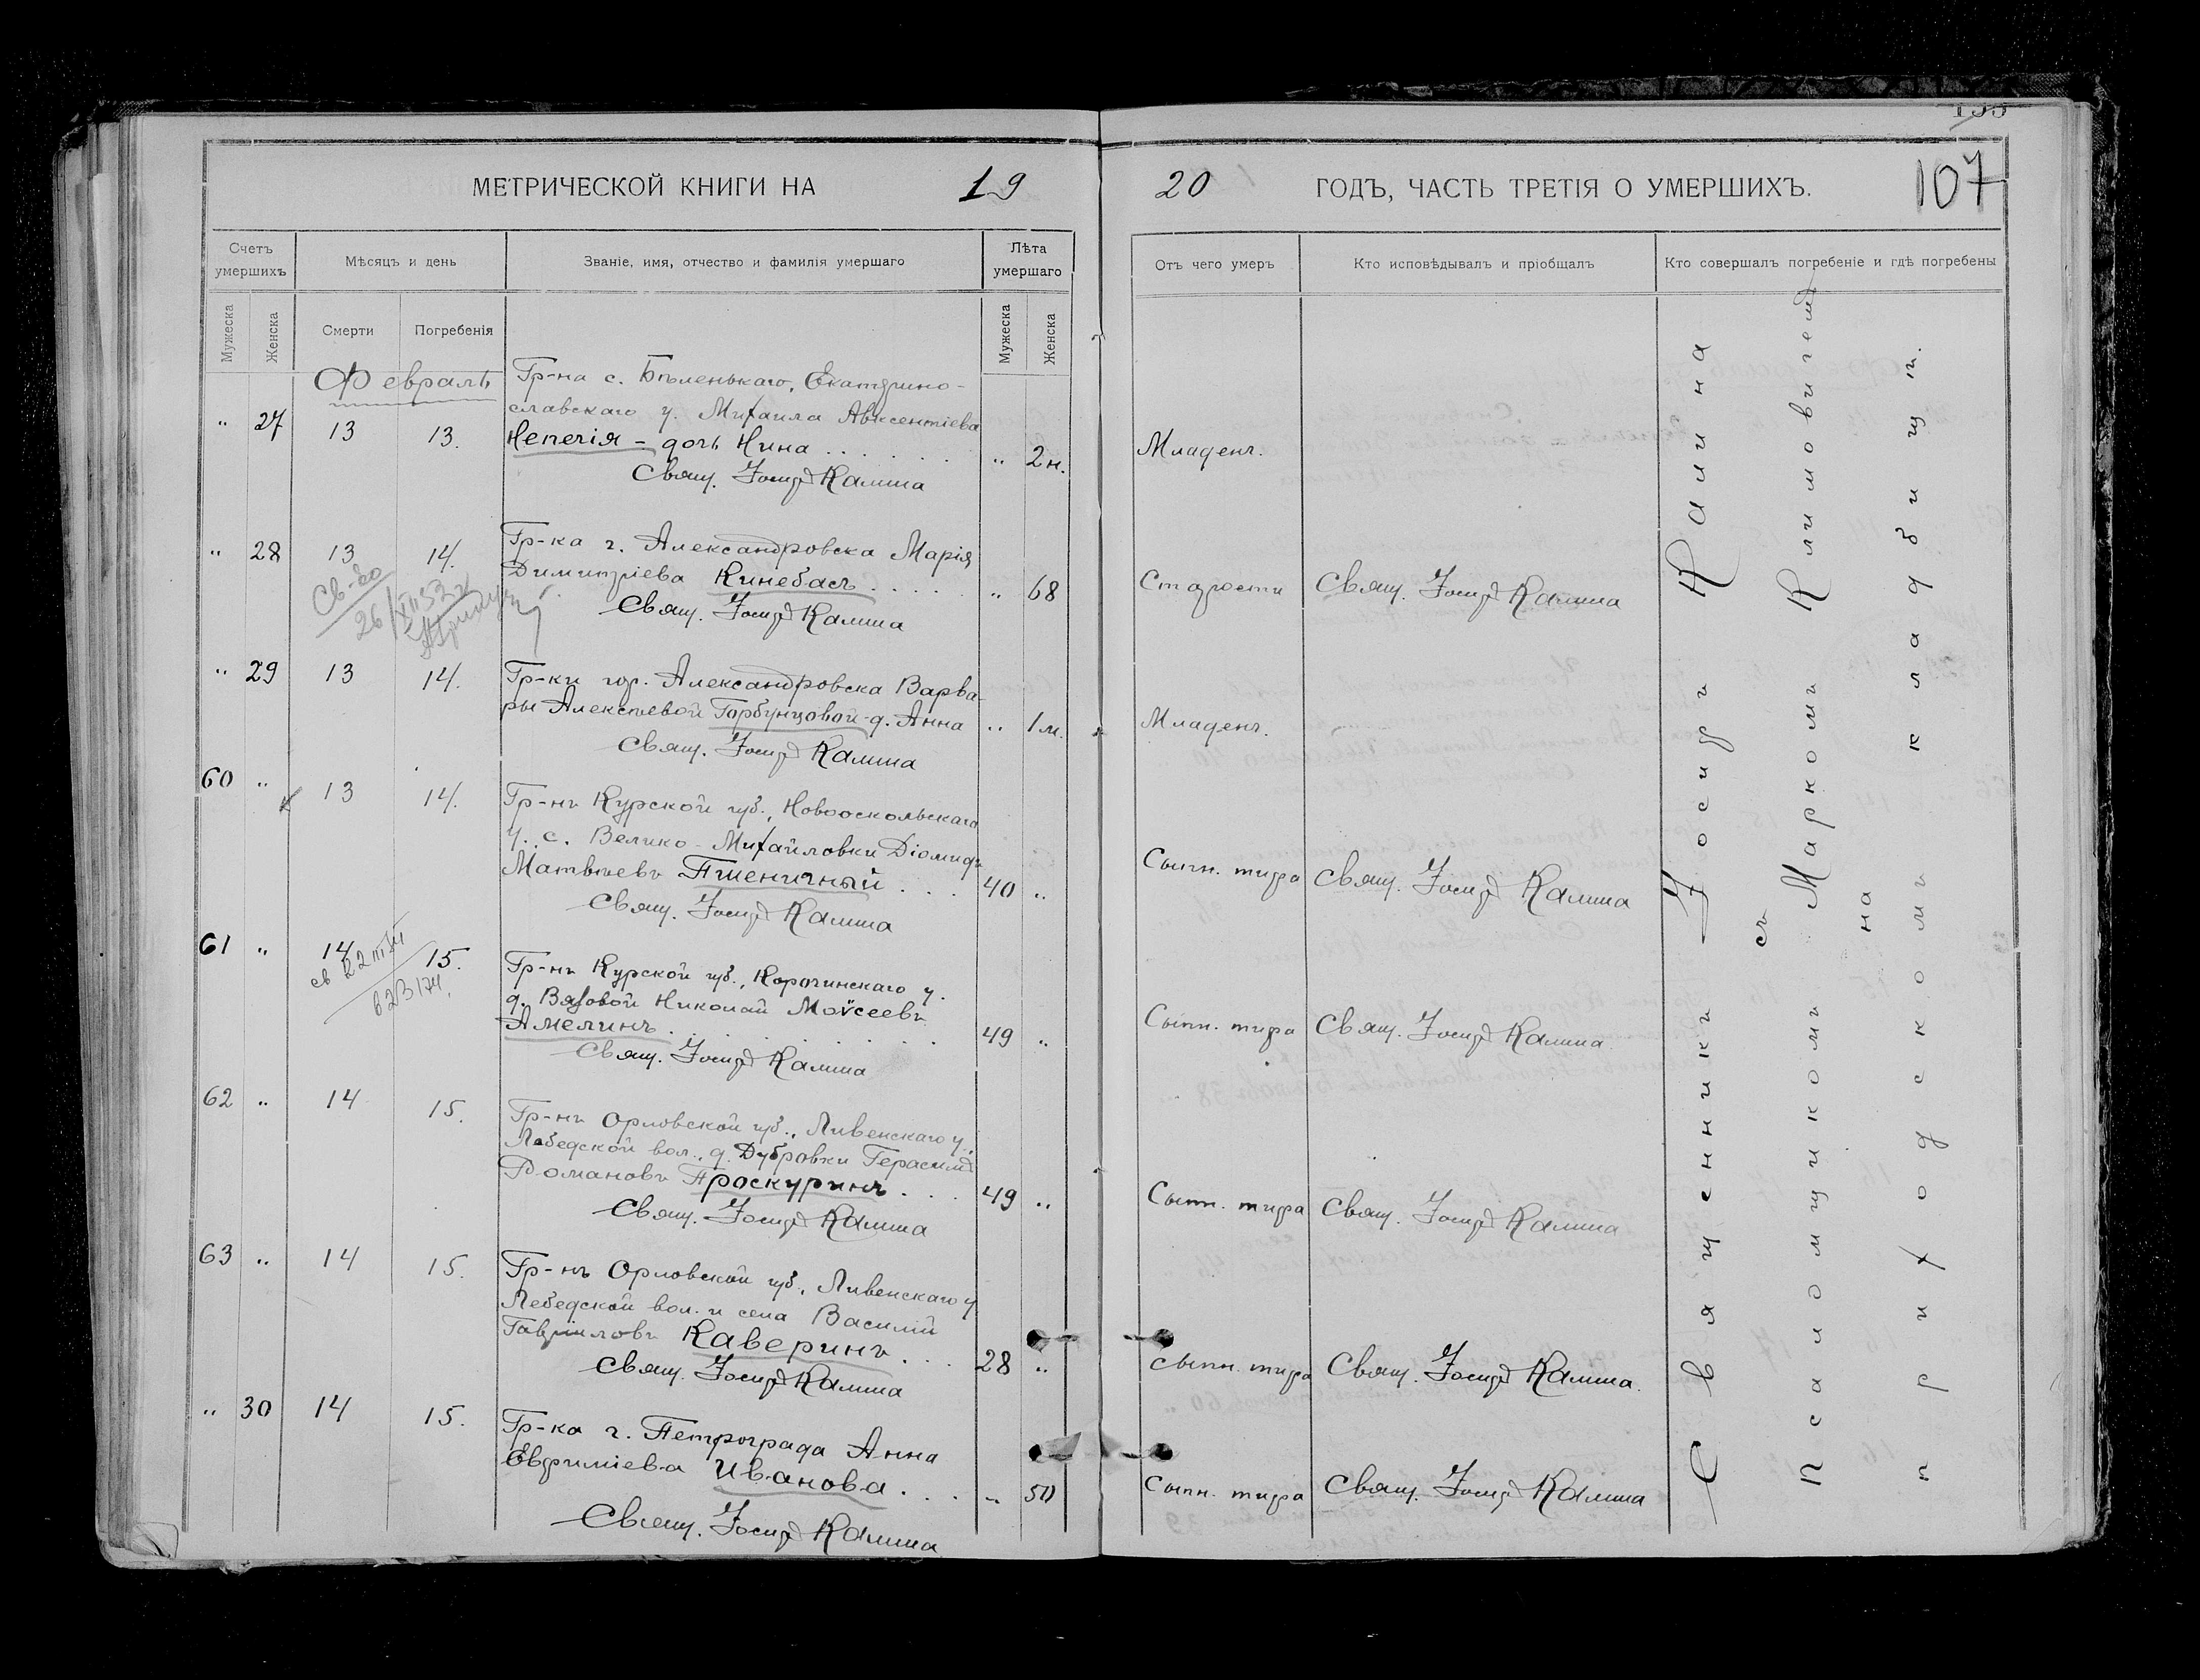 155
МЕТРИЧЕСКОЙ КНИГИ НА 19
20 ГОДЪ, ЧАСТЬ ТРЕТІЯ О УМЕРШИХЪ.
107
Счетъ умершихъ
Мѣсяцъ и день
Званіе, имя, отчество и фамилія умершаго
Лѣта умершаго
Мужеска
Женска
Смерти
Погребенія
Мужеска
Женска
Отъ чего умеръ
Кто исповѣдывалъ и пріобщалъ
Кто совершалъ погребеніе и гдѣ погребены
Февраль
" 27 13 13.
Гр-на с. Бѣленькаго, Екатерино-
славскаго у. Михаила Авксентіева
Непечія - дочь Нина . . . . . . " 2 н.
Свящ. Іосифъ Калина
Младенч.
" 28 13 14.
Гр-ка г. Александровска Марія
Димитріева Кинебасъ . . . . . " 68
Свящ. Іосифъ Калина
Старости
Свящ. Іосифъ Калина
Св-во
26/XII 53 г.
" 29 13 14.
Гр-ки гор. Александровска Варва-
ры Алексѣевой Горбунцовой - д. Анна " 1 м.
Свящ. Іосифъ Калина
Младенч.
60 " 13 14.
Гр-нъ Курской губ., Новооскольскаго
у., с. Велико-Михайловки Діомидъ
Матвѣевъ Пшеничный . . . 40 "
Свящ. Іосифъ Калина
Сыпн. тифа
Свящ. Іосифъ Калина
61 " 14 15.
св
Гр-нъ Курской губ., Корочинскаго у.
д. Вязовой Николай Моѵсеевъ
Амелинъ . . . . . . . . 49 "
Свящ. Іосифъ Калина
Сыпн. тифа
Свящ. Іосифъ Калина
62 " 14 15.
Гр-нъ Орловской губ., Ливенскаго у.,
Лебедской вол., д. Дубровки Герасимъ
Романовъ Проскуринъ . . . 49 "
Свящ. Іосифъ Калина
Сыпн. тифа
Свящ. Іосифъ Калина
63 " 14 15.
Гр-нъ Орловской губ., Ливенскаго у.
Лебедской вол. и села Василій
Гавріиловъ Каверинъ . . . 28 "
Свящ. Іосифъ Калина
Сыпн. тифа
Свящ. Іосифъ Калина.
" 30 14 15.
Гр-ка г. Петрограда Анна
Евфиміева Иванова . . . " 50
Свящ. Іосифъ Калина
Сыпн. тифа
Свящ. Іосифъ Калина
Священникъ Іосифъ Калина
съ
Псаломщикомъ Маркомъ Климовичемъ
на
приходскомъ кладбищѣ.